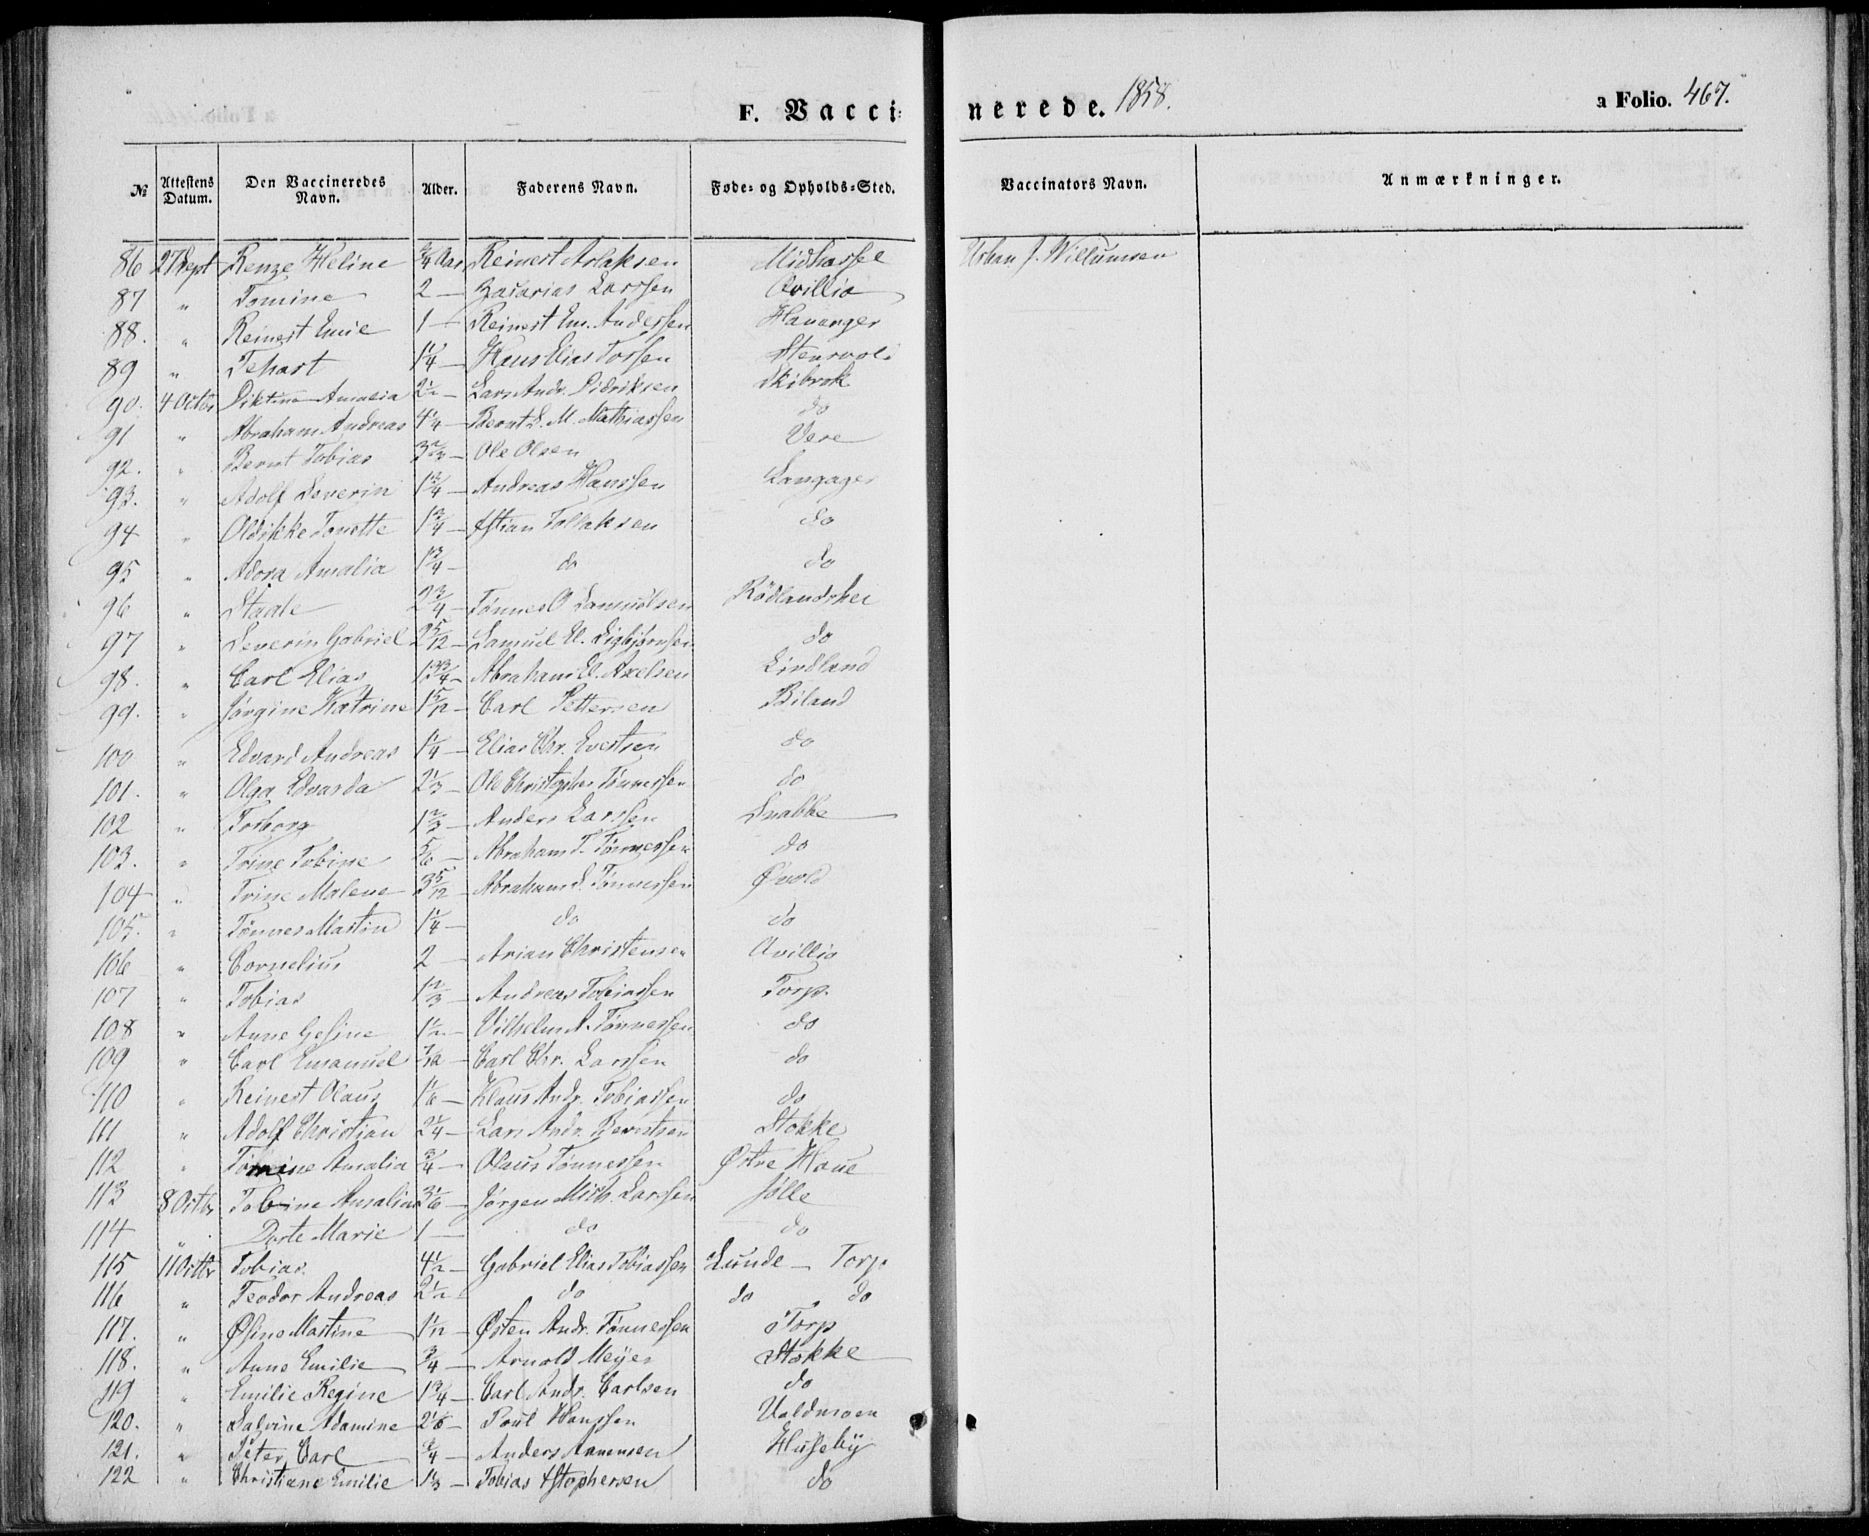 F. Vaccinerede. 1858. a Folio. 467.
No Attestens Datum. Den Vaccineredes Navn. Alder. Faderens Navn. Føde- og Opholds-Sted. Vaccinators Navn. Anmærkninger.
86 27 Sept Renze Heline 3/4 Aar Reinert Aslaksen Midhassel Urban J. Willumsen
87 " Tomine 2 — Zacarias Larssen Qvillio
88. " Reinert Emil 1 — Reinert Em. Anderssen Hananger
89 " Tehart 1 1/4 — Hans Elias Torssen
90. 4 Octbr Amalia 2 1/2 — Lars Andr. Didriksen Skibrok
91 " Abraham Andreas 4 1/4 — Bernt S. M. Mathiassen do
92. " Bernt Tobias 3 2/3 — Ole Olsen Vere
93. " Adolf Severin 1 3/4 — Andreas Hanssen Langager
94 " Oldikke Tonette 1 3/4 — Tollaksen do
95 " Adora Amalia 1 3/4 — do do
96 " Staale 2 3/4 — Tønnes O Samuelsen Rødlandshei
97 " Severin Gabriel 2 5/12 — Samuel El. Sigbjørnsen do
98. " Carl Elias 1 3/4 — Abraham El. Axelsen Lindland
99. " Jørgine Katrine 1 5/12 — Carl Pettersen Biland
100 " Edvard Andreas 1 1/4 — Elias Chr. Evertsen do
101. " Olga Edvarda 2 1/3 — Ole Christopher Tønnessen do
102 " Torborg 1 2/3 — Anders Larssen Snabbe
103. " Trine Tobine 5/6 — Abraham T. Tønnessen do
104 " Trine Malene 3 5/12 — Abraham S. Tønnessen Øvold
105. " Tønnes Martin 1 1/4 — do do
106 " Cornelius 2 — Arian Christensen Qvillio
107 " Tobias 1 2/3 — Andreas Tobiassen Torp.
108 " Anne Gesine 1 1/2 — Vilhelm A. Tønnessen do
109 " Carl Emanuel — Carl Chr. Larssen do
110 " Reinert Olaus 1 1/6 — Klaus Andr. Tobiassen do
111 " Adolf Christian 2 1/4 — Lars Andr. Berntsen Stokke
112 " Tomine Amalia 3/4 — Olaus Tønnessen Østre Haue
113 8 Octbr Tobine Amalia 3 1/6 — Jørgen Mich. Larssen Jølle
114 " Dorte Marie 1 — do do
115 11 Octbr Tobias 4 1/2 — Gabriel Elias Tobiassen Lunde — Torp
116 " Teodor Andreas 2 1/2 do do do
117. " Øsine Martine 1 1/12 — Østen Andr. Tønnessen Torp
118. " Anne Emilie 3/4 — Arnold Meyer Stokke
119 " Emilie Regine 1 3/4 — Carl Andr. Carlsen do
120. " Salvine Adamine 2 1/6 — Poul Hanssen Valdmoen
121. " Peter Carl 3/4 — Anders Annensen Huseby
122 " Christiane Emilie 1 1/3 — Tobias do